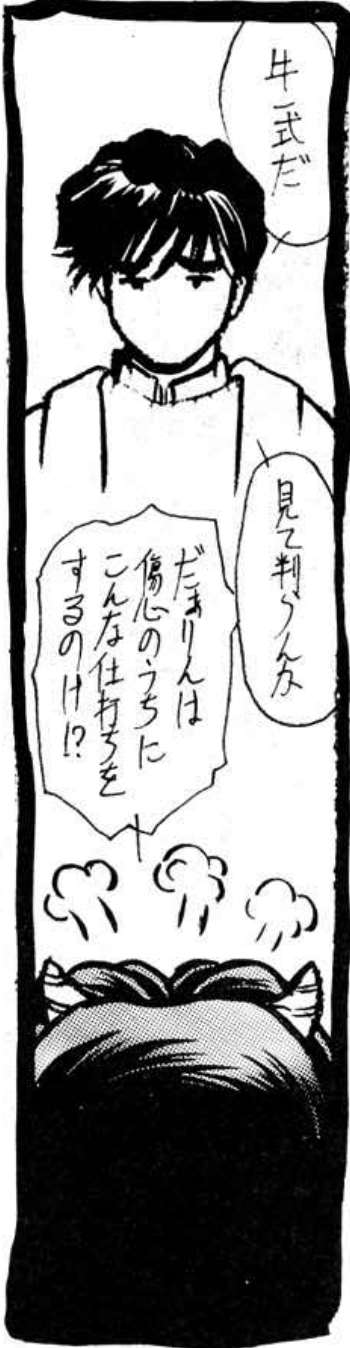 牛一式だ
見て判らんか
だぁりんは
傷心のうちに
こんな仕打ちを
するのけ!?